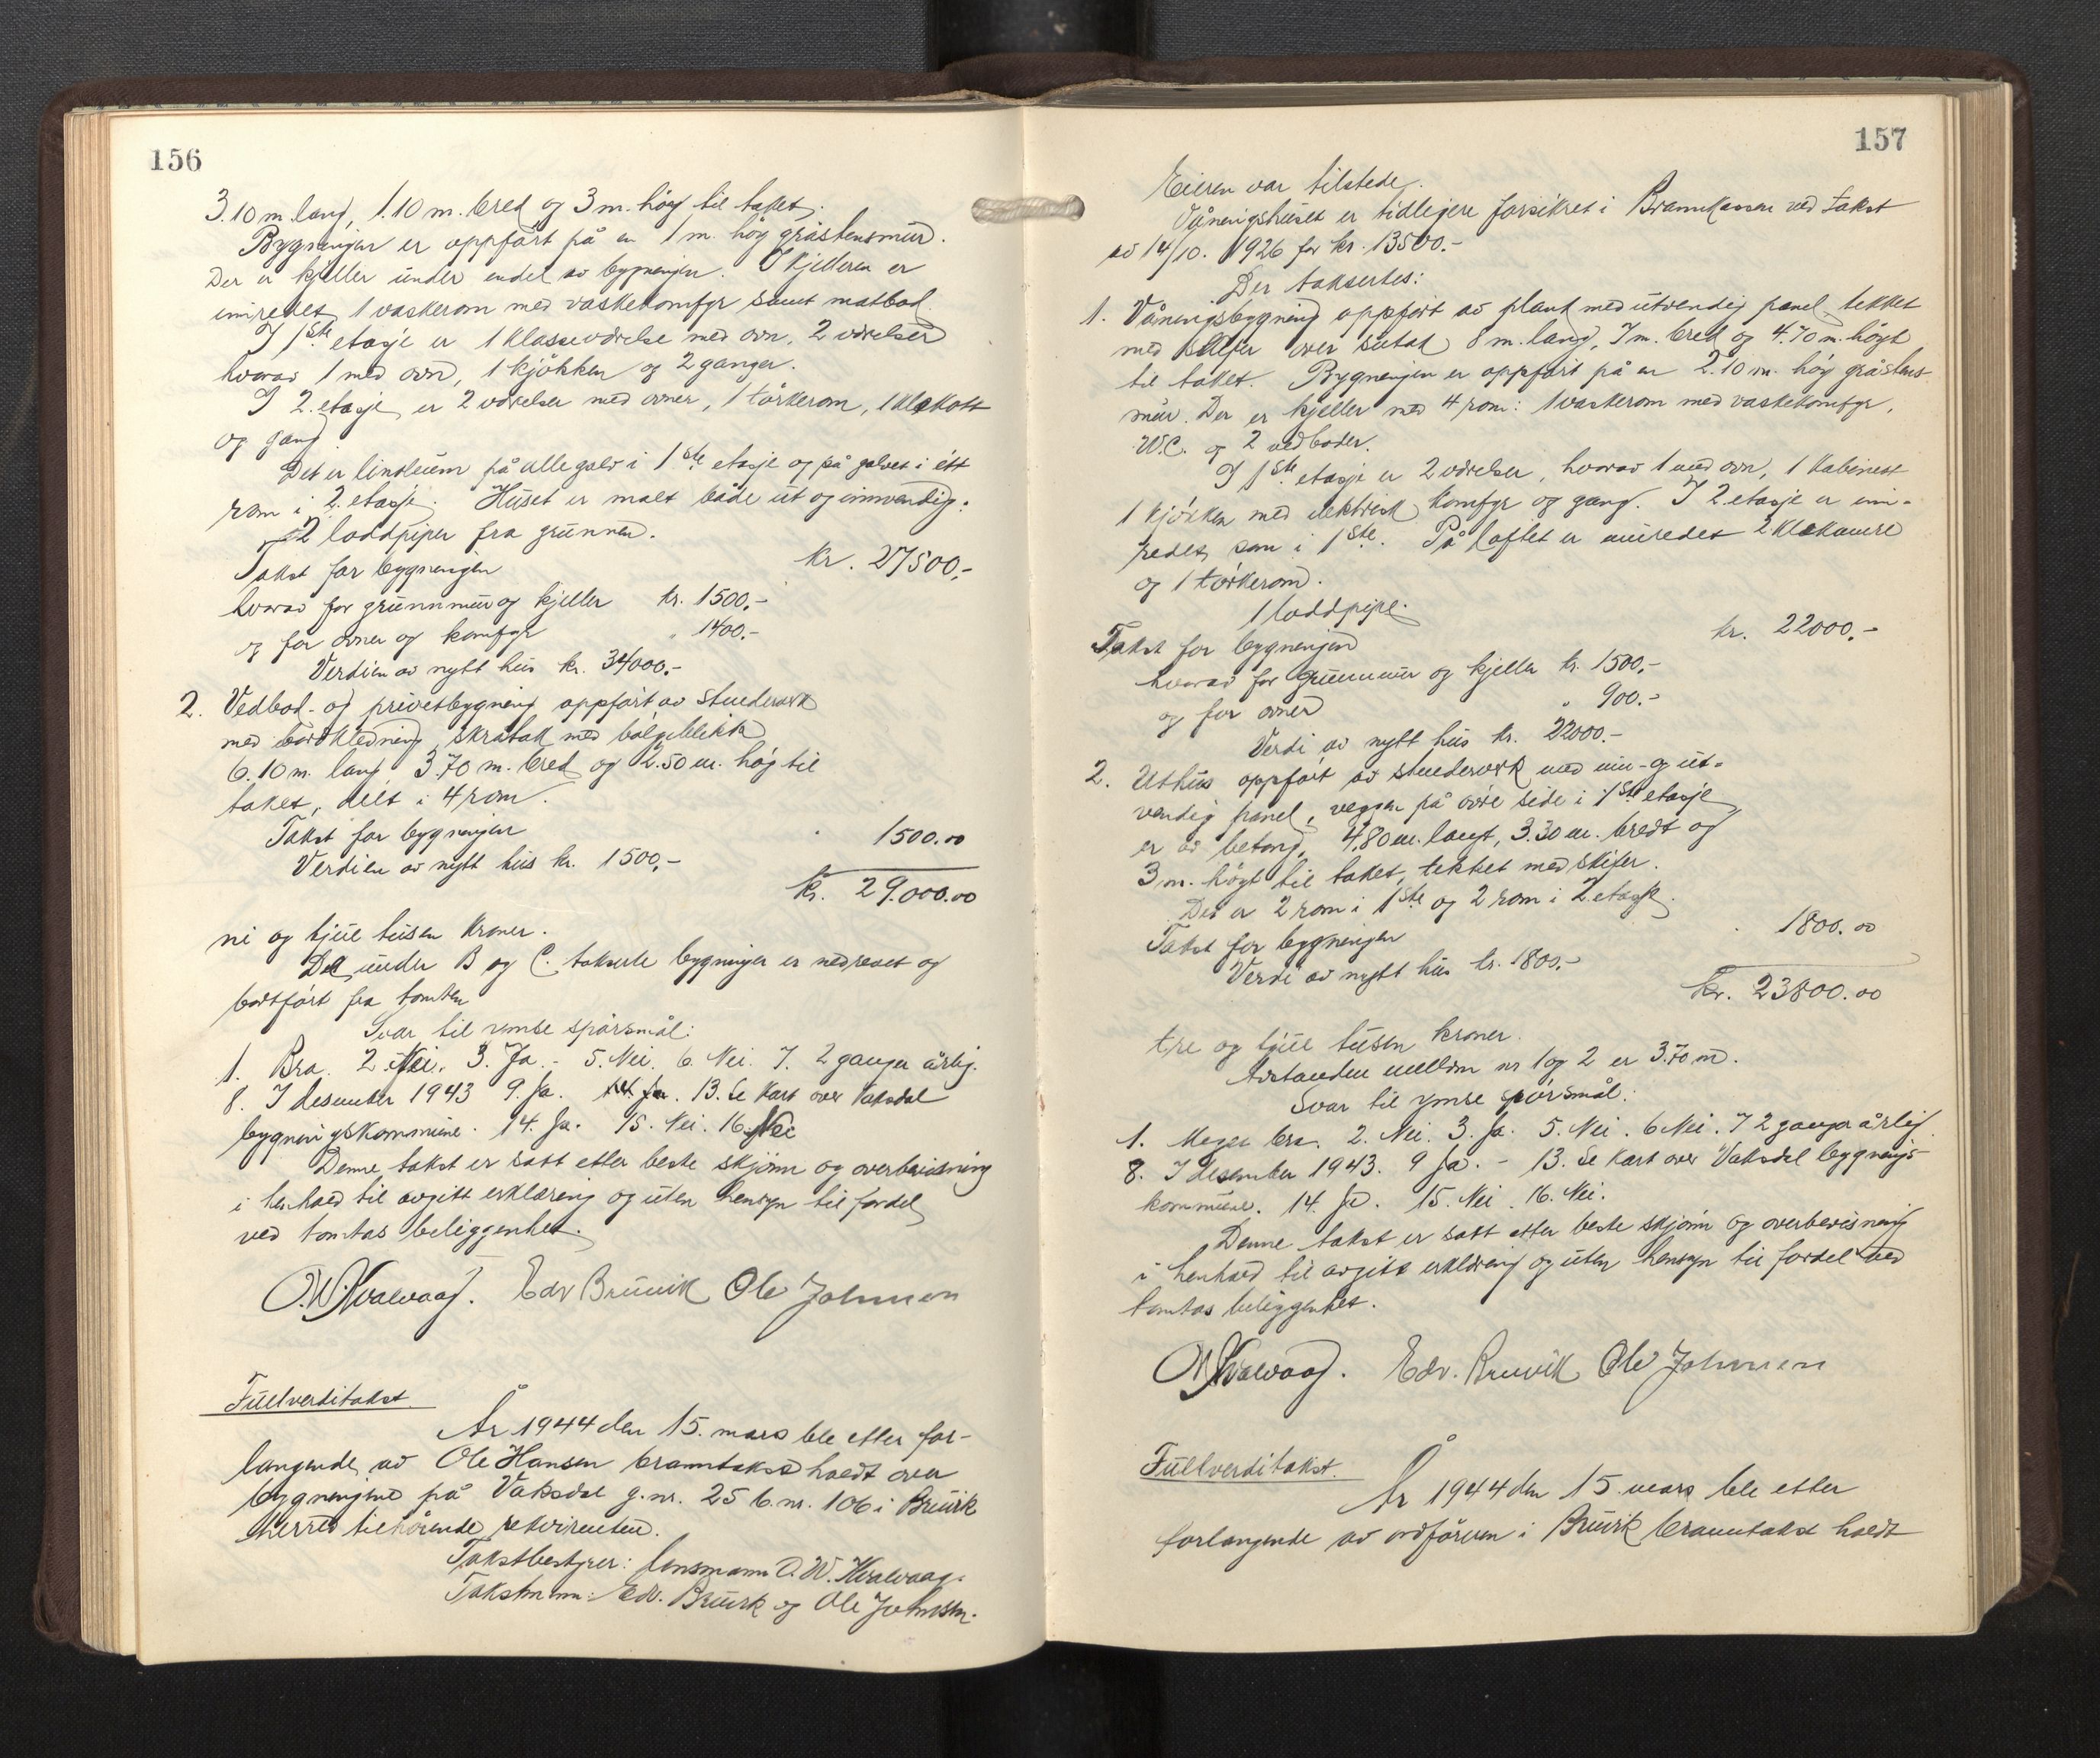 156
3.10 m. lang, 1.10 m. bred og 3 m. høg til taket.
Bygningen er oppført på en 1 m. høg gråstensmur.
Der er kjeller under endel av bygningen. I kjelleren er
innredet 1 vaskerom med vaskekomfyr samt matbod.
I 1ste etasje er 1 klasseværelse med ovn, 2 værelser
hvorav 1 med ovn, 1 kjøkken og 2 ganger.
I 2. etasje er 2 værelser med ovner, 1 tørkerom, 1 klekott
og gang.
Det er linoleum på alle golv i 1ste etasje og på golvet i ett
rom i 2. etasje. Huset er malt både ut og innvendig.
2 loddpiper fra grunnen.
Takst for bygningen kr. 27500,-
hvorav for grunnmur og kjeller kr. 1500,-
og for ovner og komfyr " 1400.-
Verdien av nytt hus kr. 34000.-
2. Vedbod- og privetbygning oppført av stenderverk
med bordkledning, skråtak med bølgeblikk
6.10 m. lang, 3.70 m. bred og 2.50 m. høg til
taket, delt i 4 rom.
Takst for bygningen " 1500.00
Verdien av nytt hus kr. 1500,-
kr. 29.000.00
ni og tjue tusen kroner.
De under B og C. takserte bygninger er nedrevet og
bortført fra tomten
Svar til ymse spørsmål:
1. Bra. 2. Nei. 3. Ja. - 5. Nei. 6. Nei. 7. 2 ganger årlig.
8. I desember 1943 9. Ja. 13. Se kart over Vaksdal
bygningskommune. 14. Ja. 15. Nei. 16. Nei
Denne takst er satt etter beste skjønn og overbevisning
i henhold til avgitt erklæring og uten hensyn til fordel
ved tomtas beliggenhet.
O.W. Hvalvaag. Edv Bruvik Ole Johnsen
Fullverditakst.
År 1944 den 15. mars ble etter for-
langende av Ole Hansen branntakst holdt over
bygningene på Vaksdal g.nr. 25 b.nr. 106 i Bruvik
herred tilhørende rekvirenten.
Takstbestyrer: lensmann O. W. Hvalvaag.
Takstmenn: Edv. Bruvik og Ole Johnsen.
157
Eieren var tilstede.
Våningshuset er tidligere forsikret i Brannkassen ved takst
av 14/10. 1926 for kr. 13500.-
Der taksertes:
1. Våningsbygning oppført av plank med utvendig panel, tekket
med skifer over sutak 8 m. lang, 7 m. bred og 4.70 m. høgt
til taket. Bygningen er oppført på en 2.10 m. høg gråstens-
mur. Der er kjeller med 4 rom: 1 vaskerom med vaskekomfyr,
W.C. og 2 vedboder.
I 1ste etasje er 2 værelser, hvorav 1 med ovn, 1 kabinett
1 kjøkken med elektrisk komfyr og gang. I 2 etasje er inn-
redet som i 1ste. På loftet er innredet 2 klekamre
og 1 tørkerom.
1 loddpipe.
Takst for bygningen kr. 22000,-
hvorav for grunnmur og kjeller kr. 1500,-
og for ovner " 900.-
Verdi av nytt hus kr. 22000.-
2. Uthus oppført av stenderverk med inn- og ut-
vendig panel, veggen på øvre side i 1ste etasje
er av betong, 4.80 m. langt, 3.30 m. bredt og
3 m. høgt til taket, tekket med skifer.
Det er 2 rom i 1ste og 2 rom i 2 etasje.
Takst for bygningen " 1800.00
Verdi av nytt hus kr. 1800.-
kr. 23800.00
tre og tjue tusen kroner.
Avstanden mellom nr 1 og 2 er 3.70 m.
Svar til ymse spørsmål:
1. Meget bra. 2. Nei. 3. Ja. 5. Nei. 6 Nei. 7 2 ganger årlig.
8. I desember 1943. 9 Ja. - 13. Se kart over Vaksdal bygnings-
kommune. 14. Ja. 15. Nei. 16. Nei.
Denne takst er satt etter beste skjønn og overbevisning
i henhold til avgitt erklæring og uten hensyn til fordel ved
tomtas beliggenhet.
OW Hvalvaag. Edv. Bruvik Ole Johnsen
Fullverditakst.
År 1944 den 15. mars ble etter
forlangende av ordføreren i Bruvik branntakst holdt